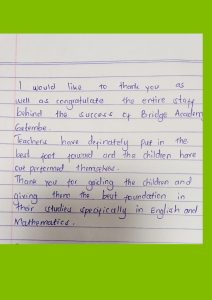 I would like to thank you as
well as congratulate the entire staff
behind the success of Bridge Academy
Gatembe.
Teachers have definately put in the
best foot foward and the children have
out preformed themselves.
Thank you for guiding the children and
giving them the best foundation in
their studies specifically in English and
Mathematics.